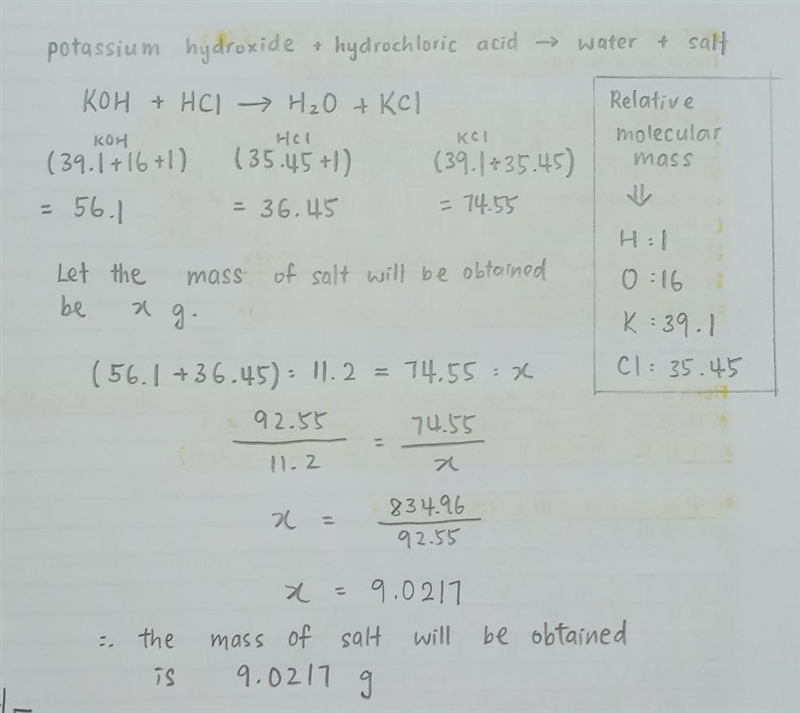 potassium hydroxide + hydrochloric acid → water + salt
KOH + HCl → H₂O + KCl
KOH HCl KCl
(39.1+16+1) (35.45+1) (39.1+35.45)
= 56.1 = 36.45 = 74.55
Let the mass of salt will be obtained
be x g.
(56.1 + 36.45) : 11.2 = 74.55 : x
92.55 / 11.2 = 74.55 / x
x = 834.96 / 92.55
x = 9.0217
∴ the mass of salt will be obtained
is 9.0217 g
Relative
molecular
mass
⇓
H : 1
O : 16
K : 39.1
Cl : 35.45